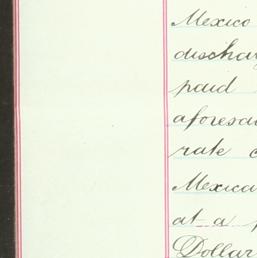 Mexico
dischar
paid
aforesai
rate
Mexica
at a
Dollar